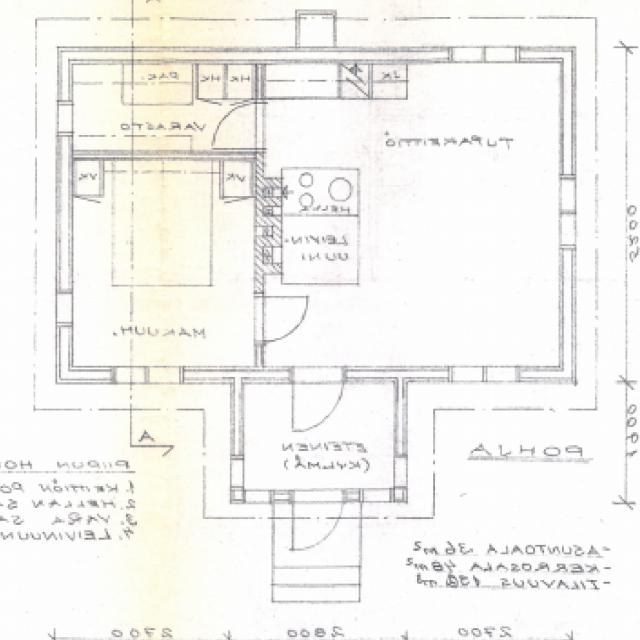 PAK.
HK
HK
JK
VARASTO
TUPAKEITTIÖ
VK
VK
HELLA
LEIVIN-
UUNI
5900
MAKUUH.
A
ETEINEN
(KYLMÄ)
POHJA
PIIPUN
1. KEITTIÖN
2. HELLAN
3. VARA
4. LEIVINUUN
-ASUNTOALA 36 m²
-KERROSALA 48 m²
-TILAVUUS
2700
2800
2700